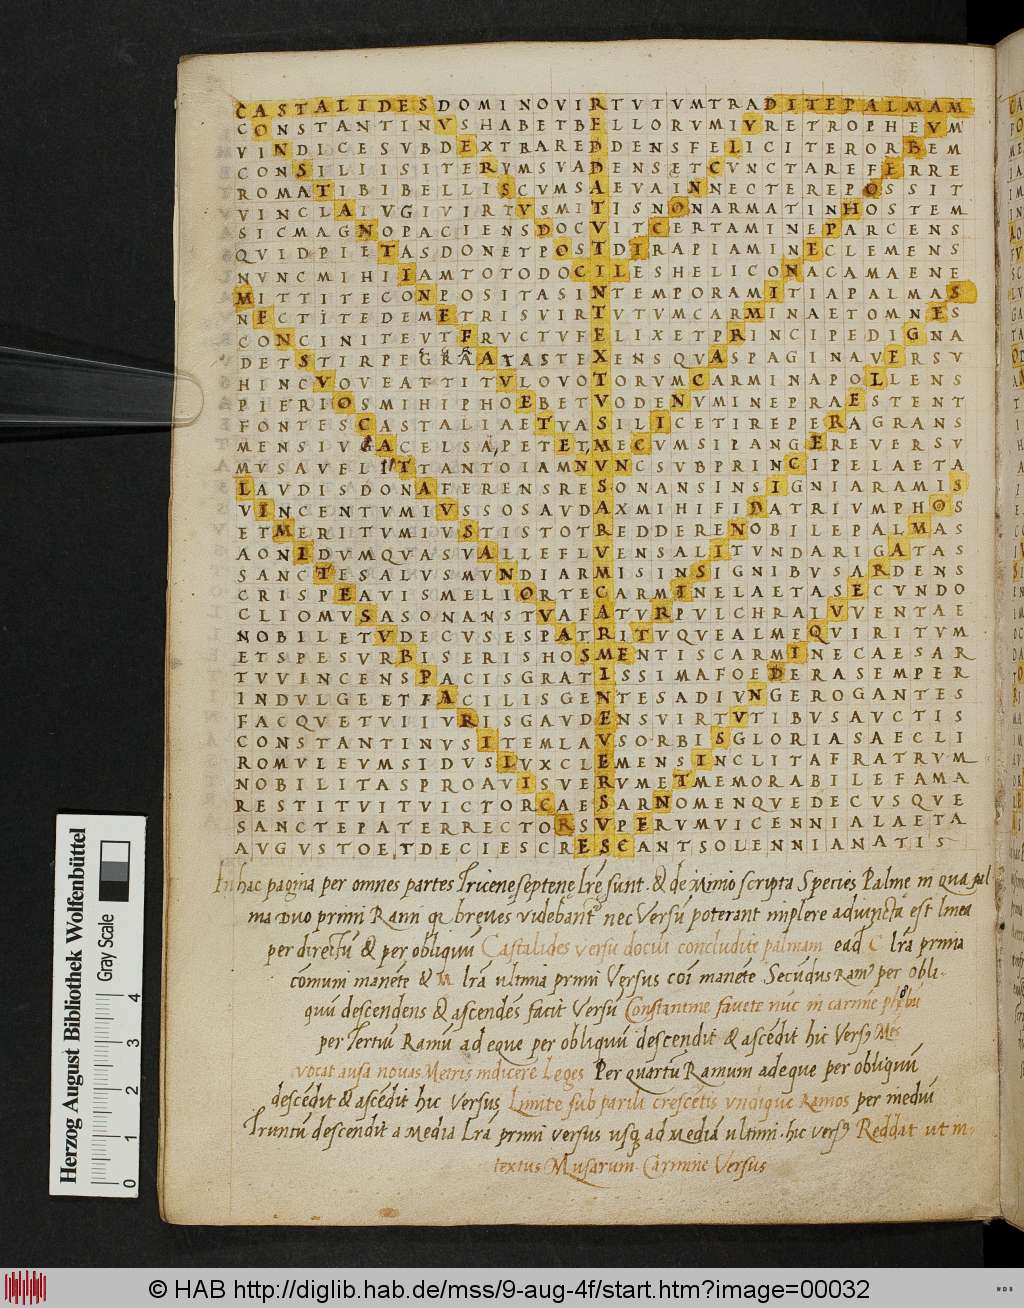 CASTALIDESDOMINOVIRTVTVMTRADITEPALMAM
CONSTANTINVSHABETBELLORVMIVRETROPHEVM
VINDICESVBDEXTRAREDDENSFELICITERORBEM
CONSILIISITERVMSVADENSETCVNCTAREFERRE
ROMATIBIBELLISCVMSAEVAINNECTEREPOSSIT
VINCLAIVGIVIRTVSMITISNONARMATINHOSTEM
SICMAGNOPACIENSDOCVITCERTAMINEPARCENS
QVIDPIETASDONETPOSTDIRAPIAMINECLEMENS
NVNCMIHIIAMTOTODOCILESHELICONACAMAENE
MITTITECONPOSITASINTEMPORAMITIAPALMAS
NECTITEDEMETRISVIRTVTVMCARMINAETOMNES
CONCINITEVTFRVCTVFELIXETPRINCIPEDIGNA
DETSTIRPEGRAATASTEXENSQVASPAGINAVERSV
HINCVOVEATTITVLOVOTORVMCARMINAPOLLENS
PIERIOSMIHIPHOEBETVODENVMINEPRAESTENT
FONTESCASTALIAETVASILICETIREPERAGRANS
MENSIVGACELSAPETETMECVMSIPANGEREVERSV
MVSAVELITTANTOIAMNVNCSVBPRINCIPELAETA
LAVDISDONAFERENSRESONANSINSIGNIARAMIS
VINCENTVMIVSSOSAVDAXMIHIFIDATRIVMPHOS
ETMERITVMIVSTISTOTREDDERENOBILEPALMAS
AONIDVMQVASVALLEFLVENSALITVNDARIGATAS
SANCTESALVSMVNDIARMISINSIGNIBVSARDENS
CRISPEAVISMELIORTECARMINELAETASECVNDO
CLIOMVSASONANSTVAFATVRPVLCHRAIVVENTAE
NOBILETVDECVSESPATRITVQVEALMEQVIRITVM
ETSPESVRBISERISHOSMENTISCARMINECAESAR
TVVINCENSPACISGRATISSIMAFOEDERASEMPER
INDVLGEETFACILISGENTESADIVNGEROGANTES
FACQVETVIIVRISGAVDENSVIRTVTIBVSAVCTIS
CONSTANTINVSITEMLAVSORBISGLORIASAECLI
ROMVLEVMSIDVSLVXCLEMENSINCLITAFRATRVM
NOBILITASPROAVISVERVMETMEMORABILEFAMA
RESTITVITVICTORCAESARNOMENQVEDECVSQVE
SANCTEPATERRECTORSVPERVMVICENNIALAETA
AVGVSTOETDECIESCRESCANTSOLENNIANATIS
In hac pagina per omnes partes Tricene septene Lrę sunt & de Minio scripta Species Palme in qua pal
ma Duo primi Rami breves videbant nec Versū poterant implere adiuncta est linea
per directū & per obliquū Castalides versu docui concludite palmam eadē C lrā prima
comuni manēte & M lrā ultima primi Versus coi manēte Secūdus Ram per obli-
quū descendens & ascendēs facit Versū Constantine favete nūc in carmine phębū
per Tertiū Ramū adeque per obliquū descendit & ascēdit hic Vers Mēs
vocat ausa novas Metris indicere Leges Per quartū Ramum adeque per obliquū
descēdit & ascēdit hic Versus Limite sub parili crescētis undique Ramos per mediū
Truncū descendit a Media Lrā primi versus usq ad Mediā ultimi. hic vers Reddat ut in-
textus Musarum Carmine Versus
Herzog August Bibliothek Wolfenbüttel
Gray Scale
0 1 2 3 4
© HAB http://diglib.hab.de/mss/9-aug-4f/start.htm?image=00032